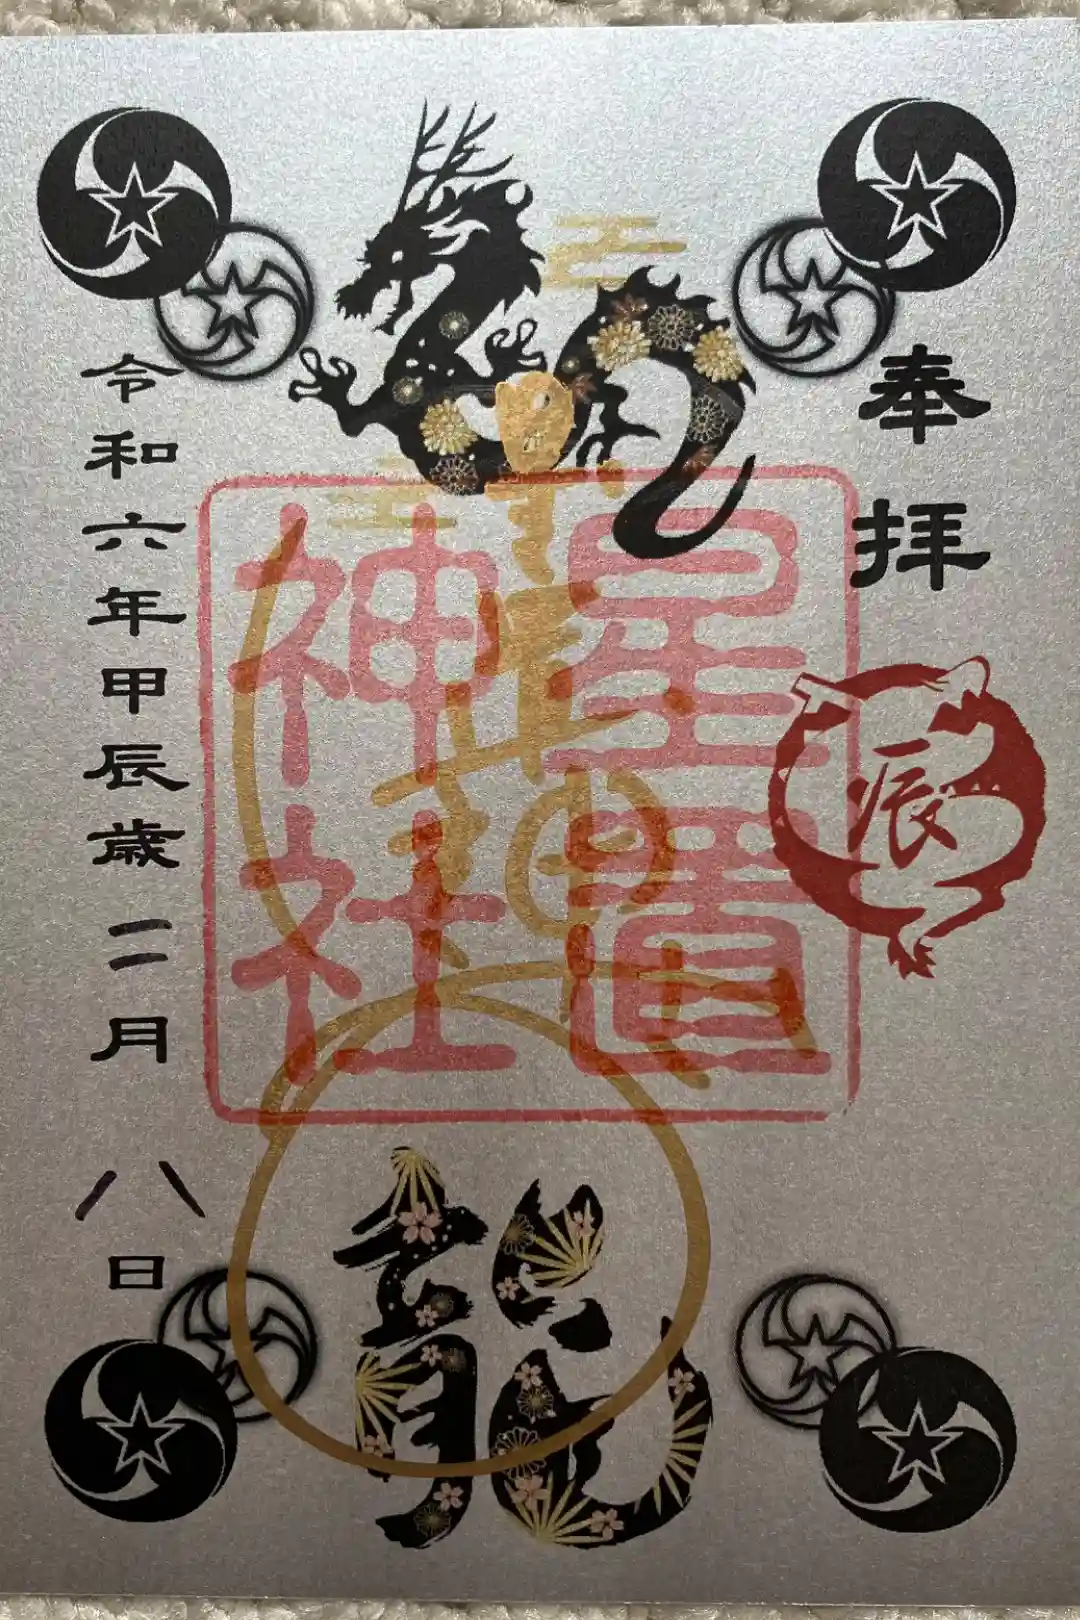 奉拝
辰
星置
神社
龍
令和六年甲辰歳二月八日